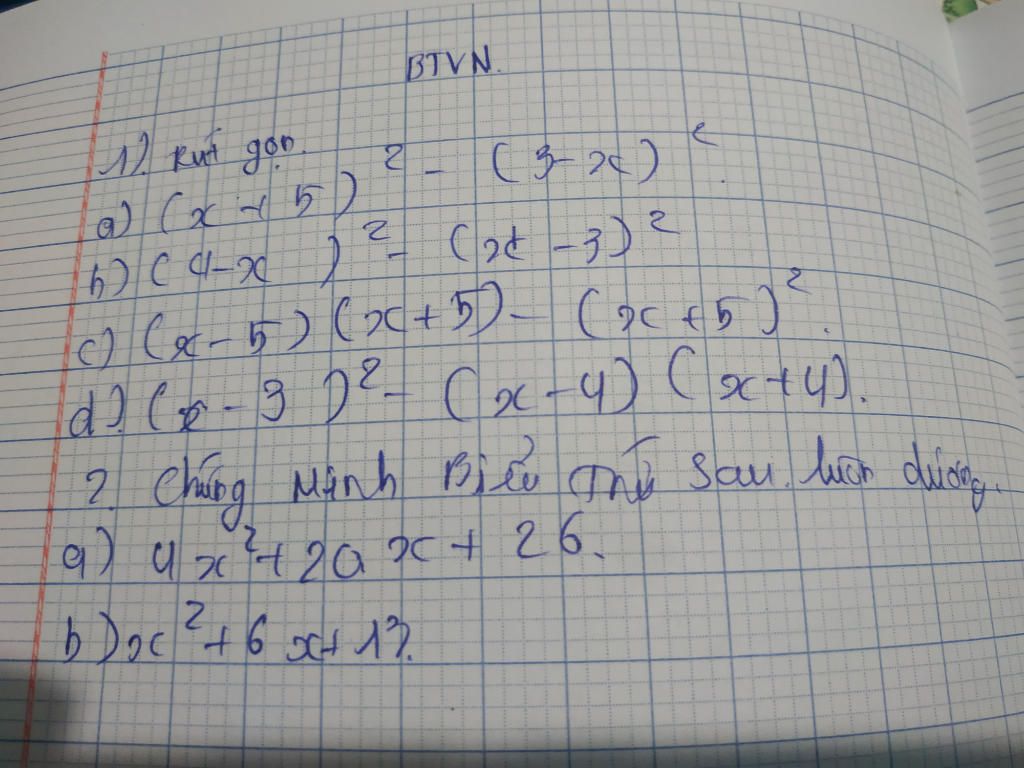 BTVN.
1). Rút gọn.
a) (x + 5)² - (3 - x)².
b) (4 - x)² - (x - 3)²
c) (x - 5)(x + 5) - (x + 5)².
d). (x - 3)² - (x - 4)(x + 4).
2. Chứng Minh Biểu Thứ sau. luôn dương.
a) 4x² + 20x + 26.
b) x² + 6x + 13.